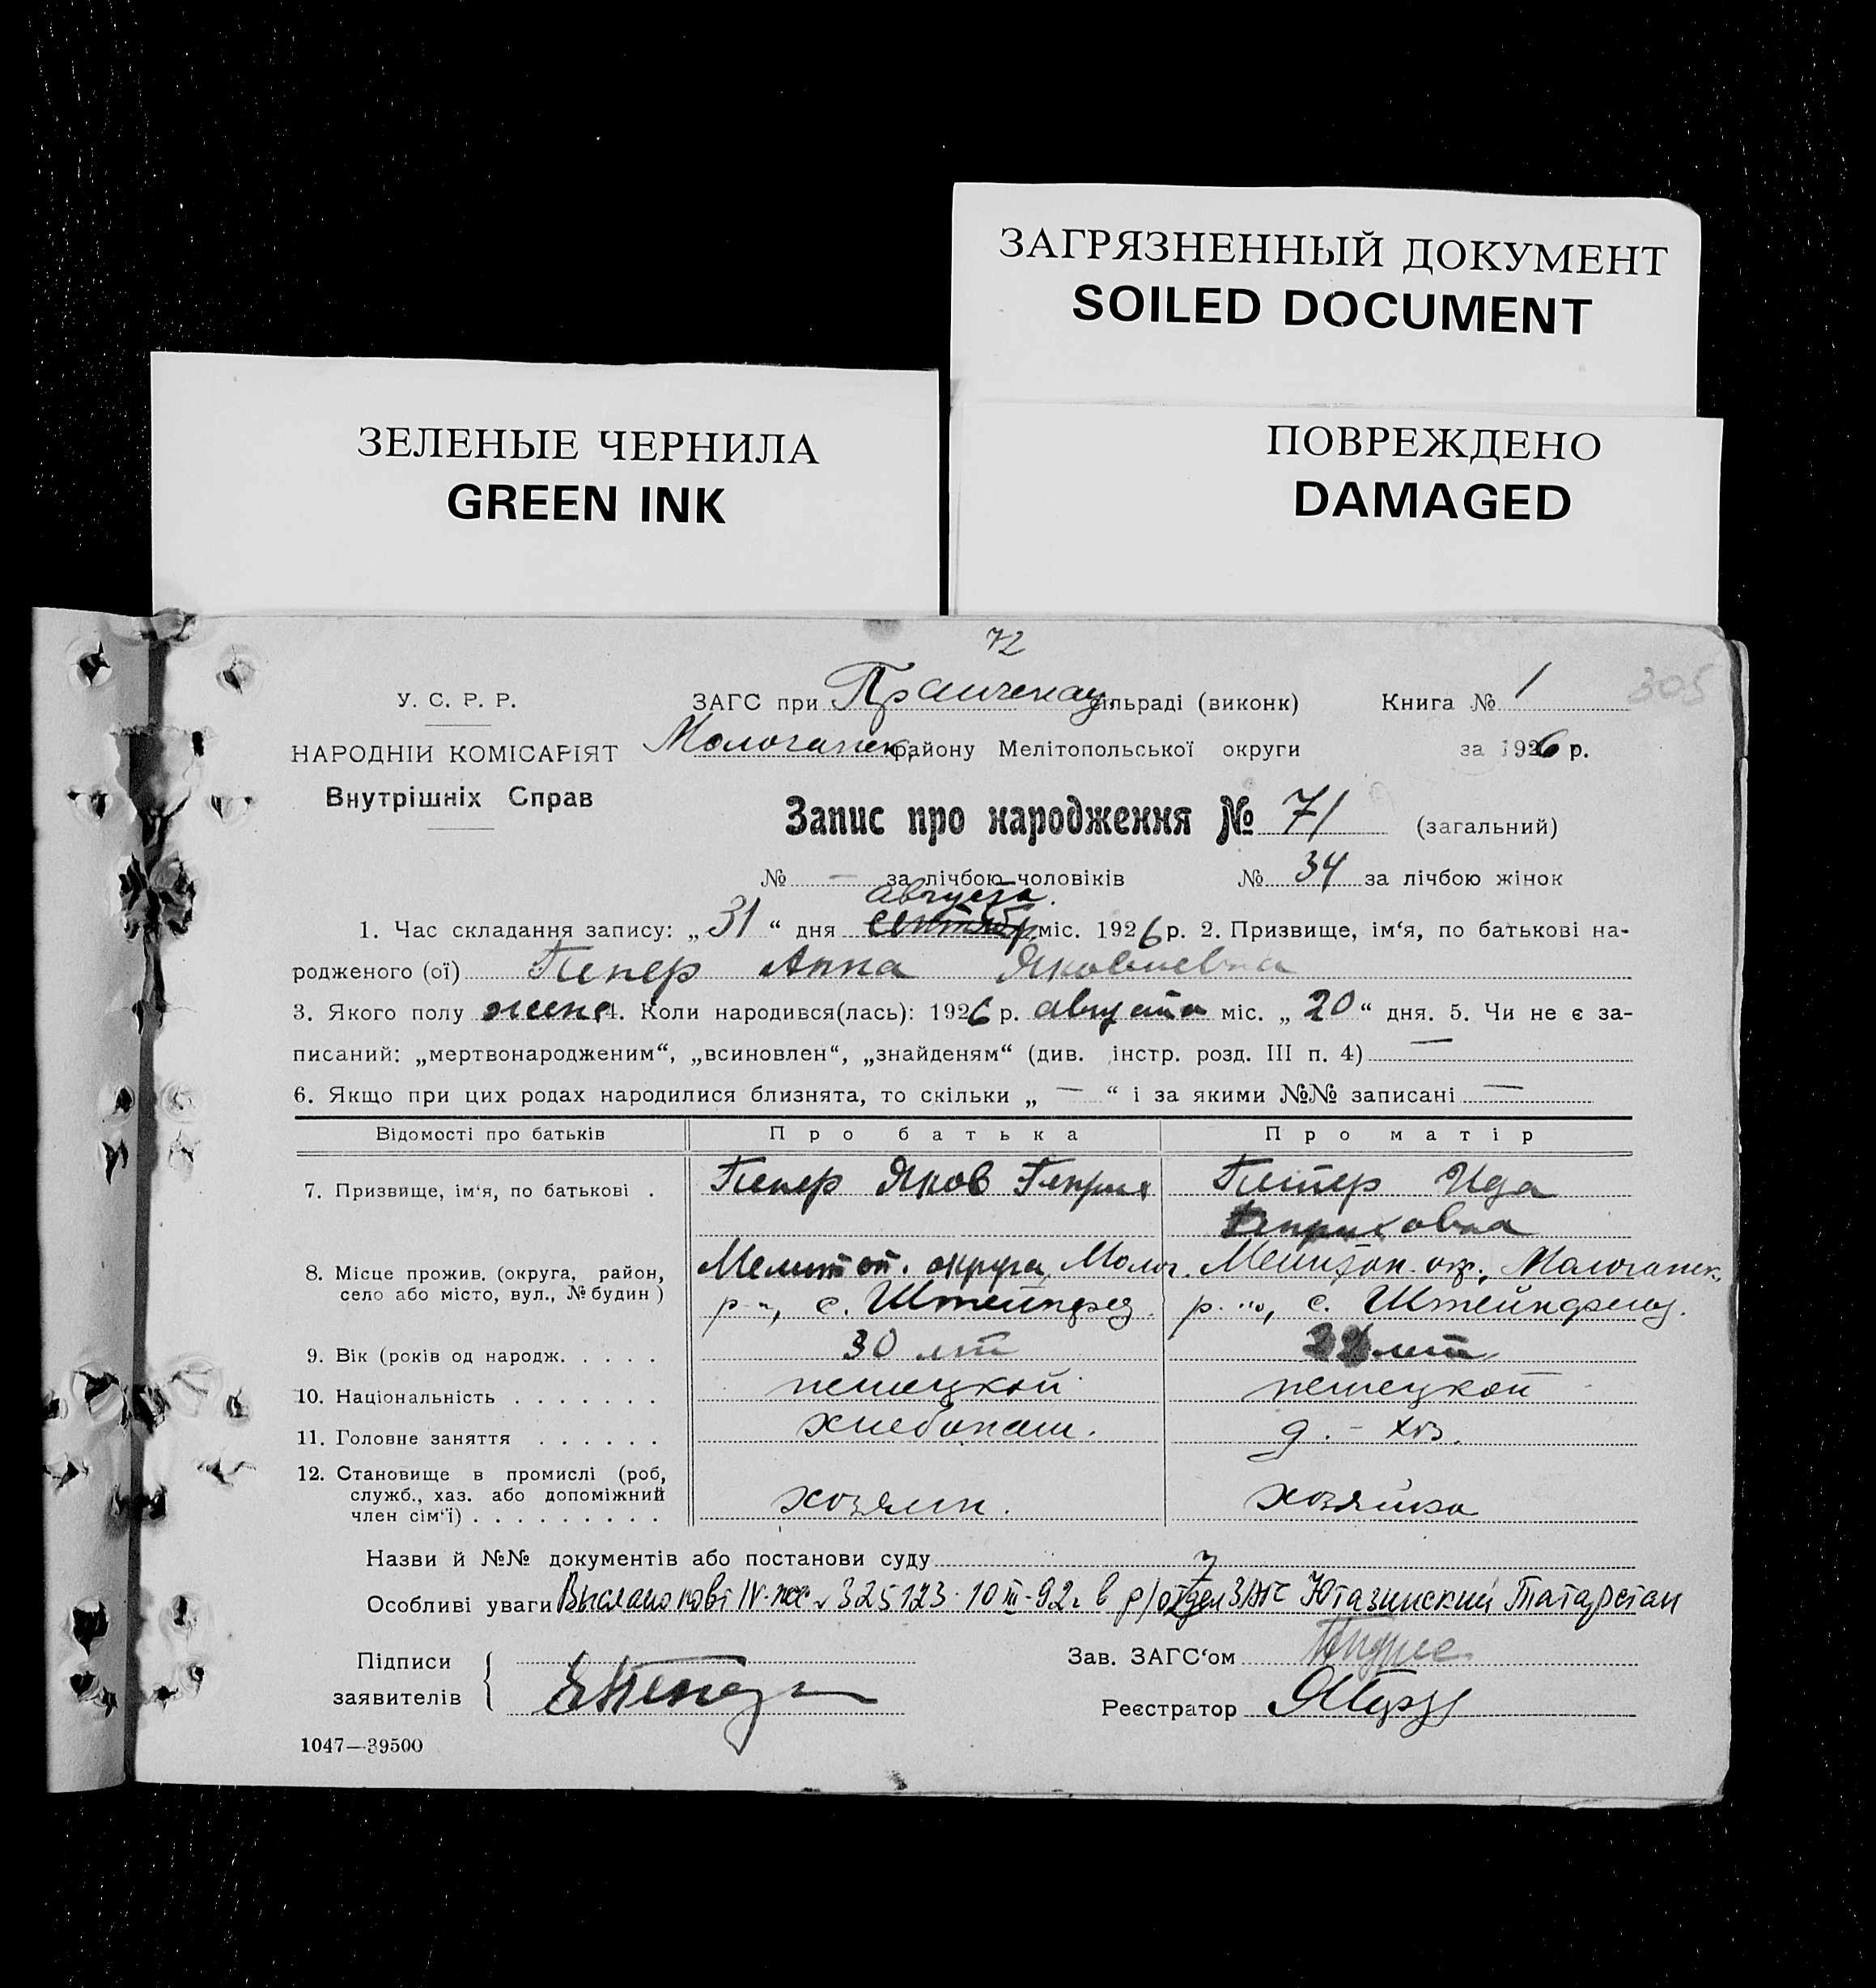 ЗАГРЯЗНЕННЫЙ ДОКУМЕНТ
SOILED DOCUMENT
ЗЕЛЕНЫЕ ЧЕРНИЛА
GREEN INK
ПОВРЕЖДЕНО
DAMAGED
72
305
У. С. Р. Р.
НАРОДНІЙ КОМІСАРІЯТ
Внутрішніх Справ
ЗАГС при Пранченау сільраді (виконк) Книга № 1
Молочанск. району Мелітопольської округи за 1926 р.
Запис про народження № 71 (загальний)
№ — за лічбою чоловіків № 34 за лічбою жінок
августа.
1. Час складання запису: „31“ дня сентябр міс. 1926 р. 2. Призвище, ім‘я, по батькові на-
родженого (ої) Гипер Анна Яковлевна
3. Якого полу жен. 4. Коли народився(лась): 1926 р. августа міс. „20“ дня. 5. Чи не є за-
писаний: „мертвонародженим“, „всиновлен“, „знайденям“ (див. інстр. розд. III п. 4) —
6. Якщо при цих родах народилися близнята, то скільки „ — “ і за якими №№ записані —
Відомості про батьків Про батька Про матір
7. Призвище, ім‘я, по батькові . Гипер Яков Генрих Гипер Ида
Генриховна
8. Місце прожив. (округа, район, Мелитоп. округа, Молоч. Мелитоп. окр., Молочанск.
село або місто, вул., № будин) р-н, с. Штейнфельд. р-н, с. Штейнфельд.
9. Вік (років од народж. . . . . 30 лет лет
10. Національність . . . . . . . немецкой немецкой
11. Головне заняття . . . . . . хлебопаш. д. - хоз.
12. Становище в промислі (роб,
служб., хаз. або допоміжний
член сім‘ї) . . . . . . . . . хозяин. хозяйка
Назви й №№ документів або постанови суду
Особливі уваги Выслано повт IV-ЖС № 325123 · 10 III-92 г в р/отдел ЗАГС Ютазинский Татарстан
Підписи
заявителів
Зав. ЗАГС‘ом
Реєстратор
1047—39500